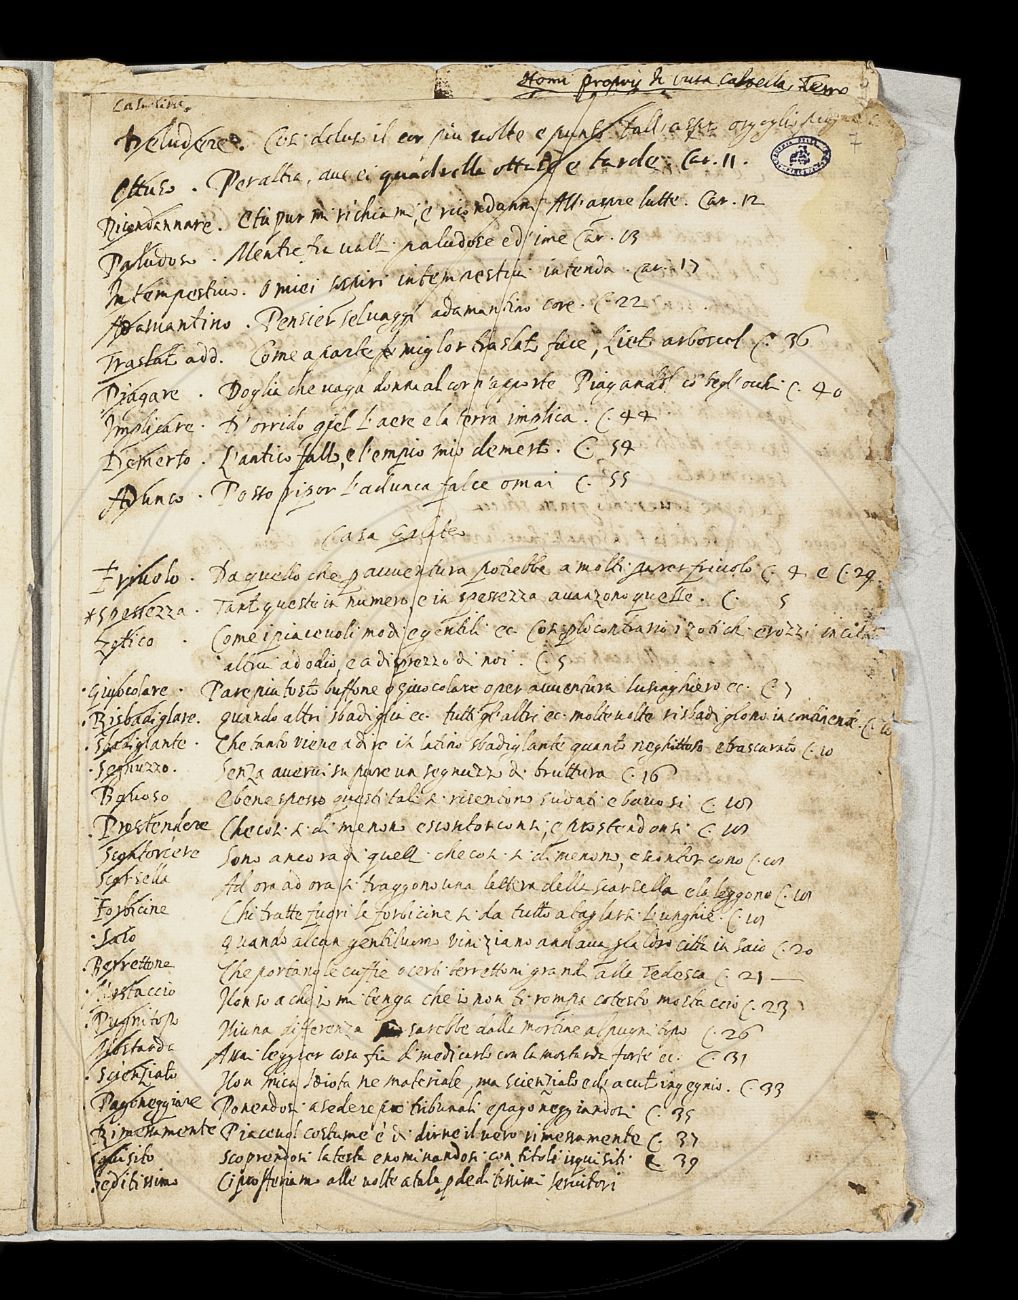 Nomi proprij di
Casa Rime
Deludere. Così deluso il cor più volte e punto
Ottuso. Peraltra, ave ei quadrella ottuse e tarde. Car. 11.
Ricondannare. E tu pur mi richiami, e ricondanni All'aspre lutte. Car. 12
Paludoso. Mentre fra valli paludose ed ime Car. 13
Intempestivo. O miei sospiri intempestivi intenda. Car. 17
Adamantino. Pensier selvaggi adamantino core. C. 22
Traslato add. Come a parte miglior traslato face, Lieto arboscel C. 36
Piagare. Doglia che vaga donna al cor n'apporte Piagandol co' begl'occhi C. 40
Implicare. D'orrido giel l'aere e la terra implica. C. 44
Demerto. L'antico fallo, e l'empio mio demerto. C. 54
Adunco. Posso pigor l'adunca falce omai C. 55
Casa Galateo
Frivolo. Da quello che p avventura potrebbe a molti parer frivolo C. 4 e C. 29.
*Spessezza. Tanto queste in numero e in spessezza avanzono quelle. C. 5
Zotico. Come i piacevoli modi e gentili ec. Così p lo contrario i zotichi e rozzi incita
altrui ad odio, e a disprezzo di noi. C. 5
Giuocolare. Pare piu tosto buffone o giuocolare o per avventura lusinghiero ec. C. 7
Risbadigliare. quando altri sbadiglia ec. tutti gl'altri ec. molte volte risbadigliono incontanente. C. 10
Sbadigliante. Che tanto viene a dire in latino sbadigliante quanto neghittoso e trascurato C. 10
Segnuzzo. Senza avervi su pure un segnuzzo di bruttura C. 16
Bavoso E bene spesso questi tali si risentono sudati e bavosi C.
Prostendere Che così si dimenono e scontorconsi, e prostendonsi C.
Scontorcere Sono ancora di quelli che così si dimenono, e scontorcono C.
Scarsella Ad ora ad ora si traggono una lettera della scarsella e la leggono C.
Forbicine Chi tratte fuori le forbicine si da tutto a tagliarsi l'unghie C.
Saio quando alcun gentiluomo viniziano andava p la loro città in saio C. 20
Berrettone Che portano le cuffie o certi berrettoni grandi alla Tedesca C. 21
Mostaccio Non so a che io mi tenga che io non ti rompa cotesto mostaccio C. 23
Pugnitopo Niuna differenza sarebbe dalla mortine al pugnitopo C. 26
Mostarda Assai leggier cosa fia di medicarlo con la mostarda forte ec. C. 31
Scienziato Non mica idiota ne materiale, ma scienziato e di acuto ingegno. C. 33
Pagoneggiare Ponendosi a sedere pro tribunali e pagoneggiandosi C. 35
Rimessamente Piacevol costume è il dirne il vero rimessamente C. 37
Squisito Scoprendosi la testa e nominandosi con titoli isquisiti C. 39
Deditissimo Ci profferiamo alle volte a tale p deditissimi servitori